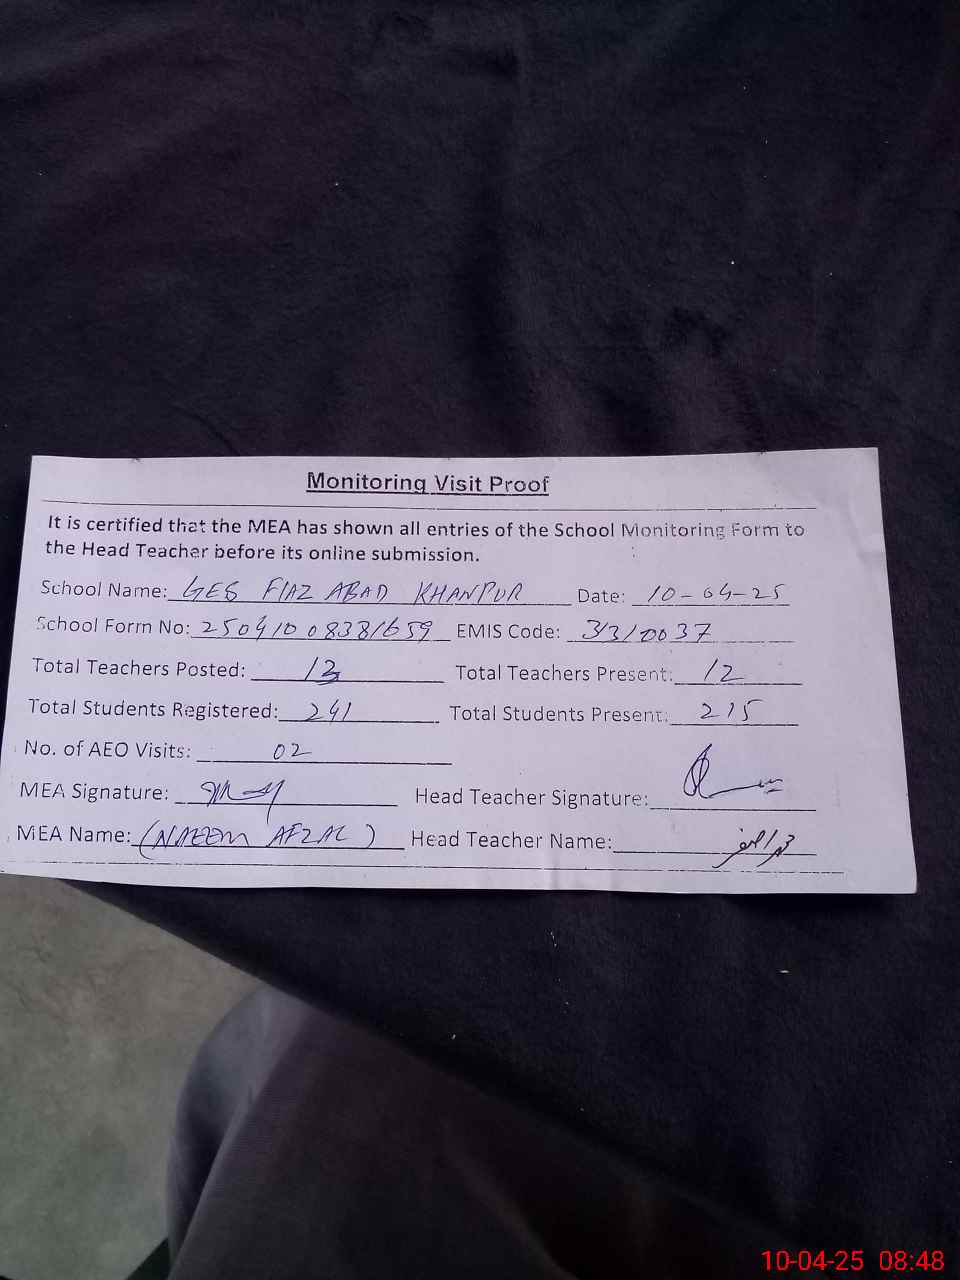 Monitoring Visit Proof
It is certified that the MEA has shown all entries of the School Monitoring Form to
the Head Teacher before its online submission.
School Name: GES FIAZ ABAD KHANPUR Date: 10-04-25
School Form No: 25041008381659 EMIS Code: 31310037
Total Teachers Posted: 13 Total Teachers Present: 12
Total Students Registered: 241 Total Students Present: 215
No. of AEO Visits: 02
MEA Signature: Head Teacher Signature:
MEA Name: (NAEEM AFZAL) Head Teacher Name:
10-04-25 08:48